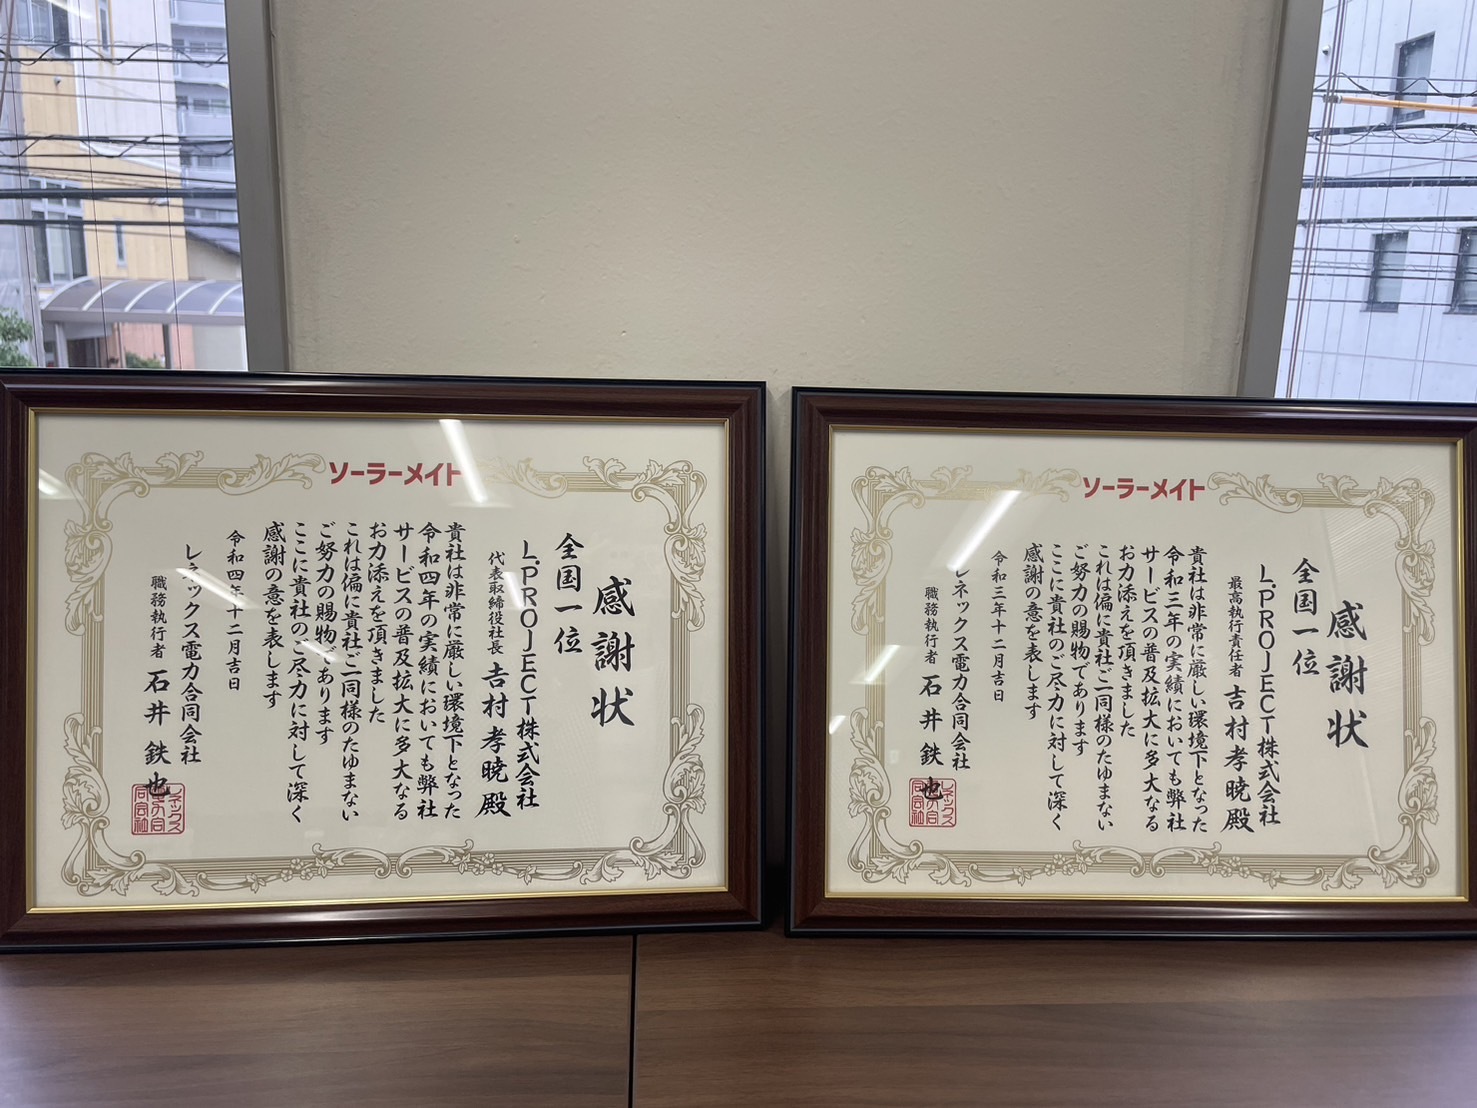 ソーラーメイト
感謝状
全国一位
L.PROJECT株式会社
代表取締役社長 𠮷村孝暁殿
貴社は非常に厳しい環境下となった
令和四年の実績においても弊社
サービスの普及拡大に多大なる
お力添えを頂きました
これは偏に貴社ご一同様のたゆまない
ご努力の賜物であります
ここに貴社のご尽力に対して深く
感謝の意を表します
令和四年十二月吉日
レネックス電力合同会社
職務執行者 石井 鉄也
ソーラーメイト
感謝状
全国一位
L.PROJECT株式会社
最高執行責任者 吉村孝暁殿
貴社は非常に厳しい環境下となった
令和三年の実績においても弊社
サービスの普及拡大に多大なる
お力添えを頂きました
これは偏に貴社ご一同様のたゆまない
ご努力の賜物であります
ここに貴社のご尽力に対して深く
感謝の意を表します
令和三年十二月吉日
レネックス電力合同会社
職務執行者 石井 鉄也